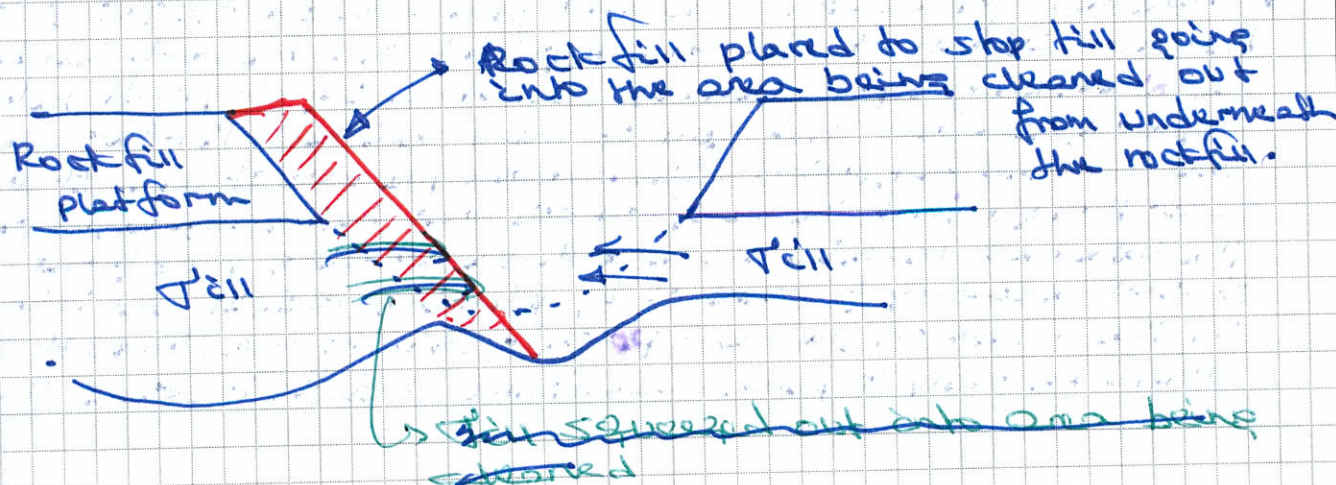 Rockfill placed to stop till going
into the area being cleaned out
from underneath
the rockfill.
Rockfill
platform
Till
Till
Till squeezed out into area being
cleaned